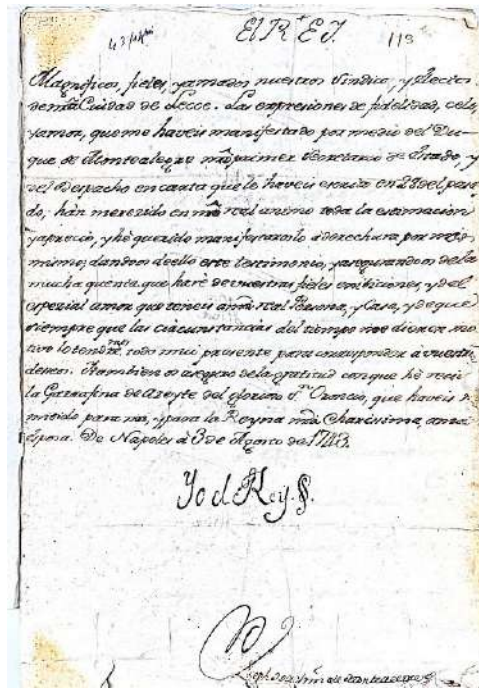 El REY
113
Magnificos, fieles, yamados nuestros Sindico, y Electos
de nrã Ciudad de Lecce. Las expresiones de fidelidad, celo,
yamor, que me haveis manifestado por medio del Du-
que de Montealegre mio primer Secretario de Estado, y
del Despacho en carta que le haveis escrito en 28 del pasa
do, hán merezido en mi Real animo toda la estimacion
yaprecio, y hé querido manifestaroslo à derechura por mi
mismo, dandoos de ello este testimonio, yasegurandoos de la
mucha quenta que haré de vuestras fieles emiciones, y del
espezial amor que teneis à mi Real Persona, y Casa, y de que
siempre que las circunstancias del tiempo me dieren mo
tivo lo tendré todo mui presente para corresponder à vuestros
deseos. Tambien os aseguro de la gratitud con que hé recivi
la Garrafina de Azeyte del glorioso Sn. Oroncio, que haveis re
mitido para mi, y para la Reyna mia Charissima, amada
Esposa. De Napoles à 3 de Agosto de 1743.
Yo el Rey.
Joseph Joachin de Montealegre